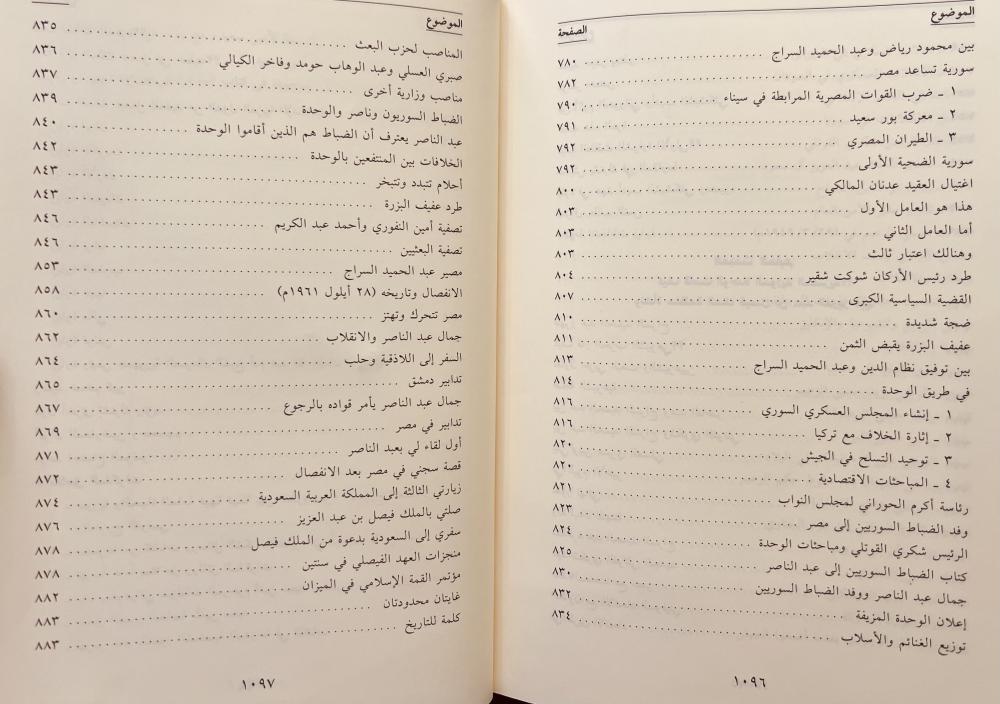 الموضوع الصفحة
بين محمود رياض وعبد الحميد السراج ........ ٧٨٠
سورية تساعد مصر ........ ٧٨٢
١ ـ ضرب القوات المصرية المرابطة في سيناء ........ ٧٩٠
٢ ـ معركة بور سعيد ........ ٧٩١
٣ ـ الطيران المصري ........ ٧٩٢
سورية الضحية الأولى ........ ٧٩٢
اغتيال العقيد عدنان المالكي ........ ٨٠٠
هذا هو العامل الأول ........ ٨٠٣
أما العامل الثاني ........ ٨٠٣
وهنالك اعتبار ثالث ........ ٨٠٣
طرد رئيس الأركان شوكت شقير ........ ٨٠٤
القضية السياسية الكبرى ........ ٨٠٧
ضجة شديدة ........ ٨١٠
عفيف البزرة يقبض الثمن ........ ٨١١
بين توفيق نظام الدين وعبد الحميد السراج ........ ٨١٣
في طريق الوحدة ........ ٨١٤
١ ـ إنشاء المجلس العسكري السوري ........ ٨١٦
٢ ـ إثارة الخلاف مع تركيا ........ ٨١٦
٣ ـ توحيد التسلح في الجيش ........ ٨٢٠
٤ ـ المباحثات الاقتصادية ........ ٨٢٠
رئاسة أكرم الحوراني لمجلس النواب ........ ٨٢١
وفد الضباط السوريين إلى مصر ........ ٨٢٣
الرئيس شكري القوتلي ومباحثات الوحدة ........ ٨٢٤
كتاب الضباط السوريين إلى عبد الناصر ........ ٨٢٥
جمال عبد الناصر ووفد الضباط السوريين ........ ٨٣٠
إعلان الوحدة المزيفة ........ ٨٣٢
توزيع الغنائم والأسلاب ........ ٨٣٤
١٠٩٦
الموضوع
المناصب لحزب البعث ........ ٨٣٥
صبري العسلي وعبد الوهاب حومد وفاخر الكيالي ........ ٨٣٦
مناصب وزارية أخرى ........ ٨٣٧
الضباط السوريون وناصر والوحدة ........ ٨٣٩
عبد الناصر يعترف أن الضباط هم الذين أقاموا الوحدة ........ ٨٤٠
الخلافات بين المنتفعين بالوحدة ........ ٨٤٢
أحلام تتبدد وتتبخر ........ ٨٤٣
طرد عفيف البزرة ........ ٨٤٣
تصفية أمين النفوري وأحمد عبد الكريم ........ ٨٤٦
تصفية البعثيين ........ ٨٤٦
مصير عبد الحميد السراج ........ ٨٥٣
الانفصال وتاريخه (٢٨ أيلول ١٩٦١م) ........ ٨٥٨
مصر تتحرك وتهتز ........ ٨٦٠
جمال عبد الناصر والانقلاب ........ ٨٦٢
السفر إلى اللاذقية وحلب ........ ٨٦٤
تدابير دمشق ........ ٨٦٥
جمال عبد الناصر يأمر قواده بالرجوع ........ ٨٦٧
تدابير في مصر ........ ٨٦٩
أول لقاء لي بعبد الناصر ........ ٨٧١
قصة سجني في مصر بعد الانفصال ........ ٨٧٢
زيارتي الثالثة إلى المملكة العربية السعودية ........ ٨٧٤
صلتي بالملك فيصل بن عبد العزيز ........ ٨٧٦
سفري إلى السعودية بدعوة من الملك فيصل ........ ٨٧٨
منجزات العهد الفيصلي في سنتين ........ ٨٧٨
مؤتمر القمة الإسلامي في الميزان ........ ٨٨٢
غايتان محدودتان ........ ٨٨٣
كلمة للتاريخ ........ ٨٨٣
١٠٩٧